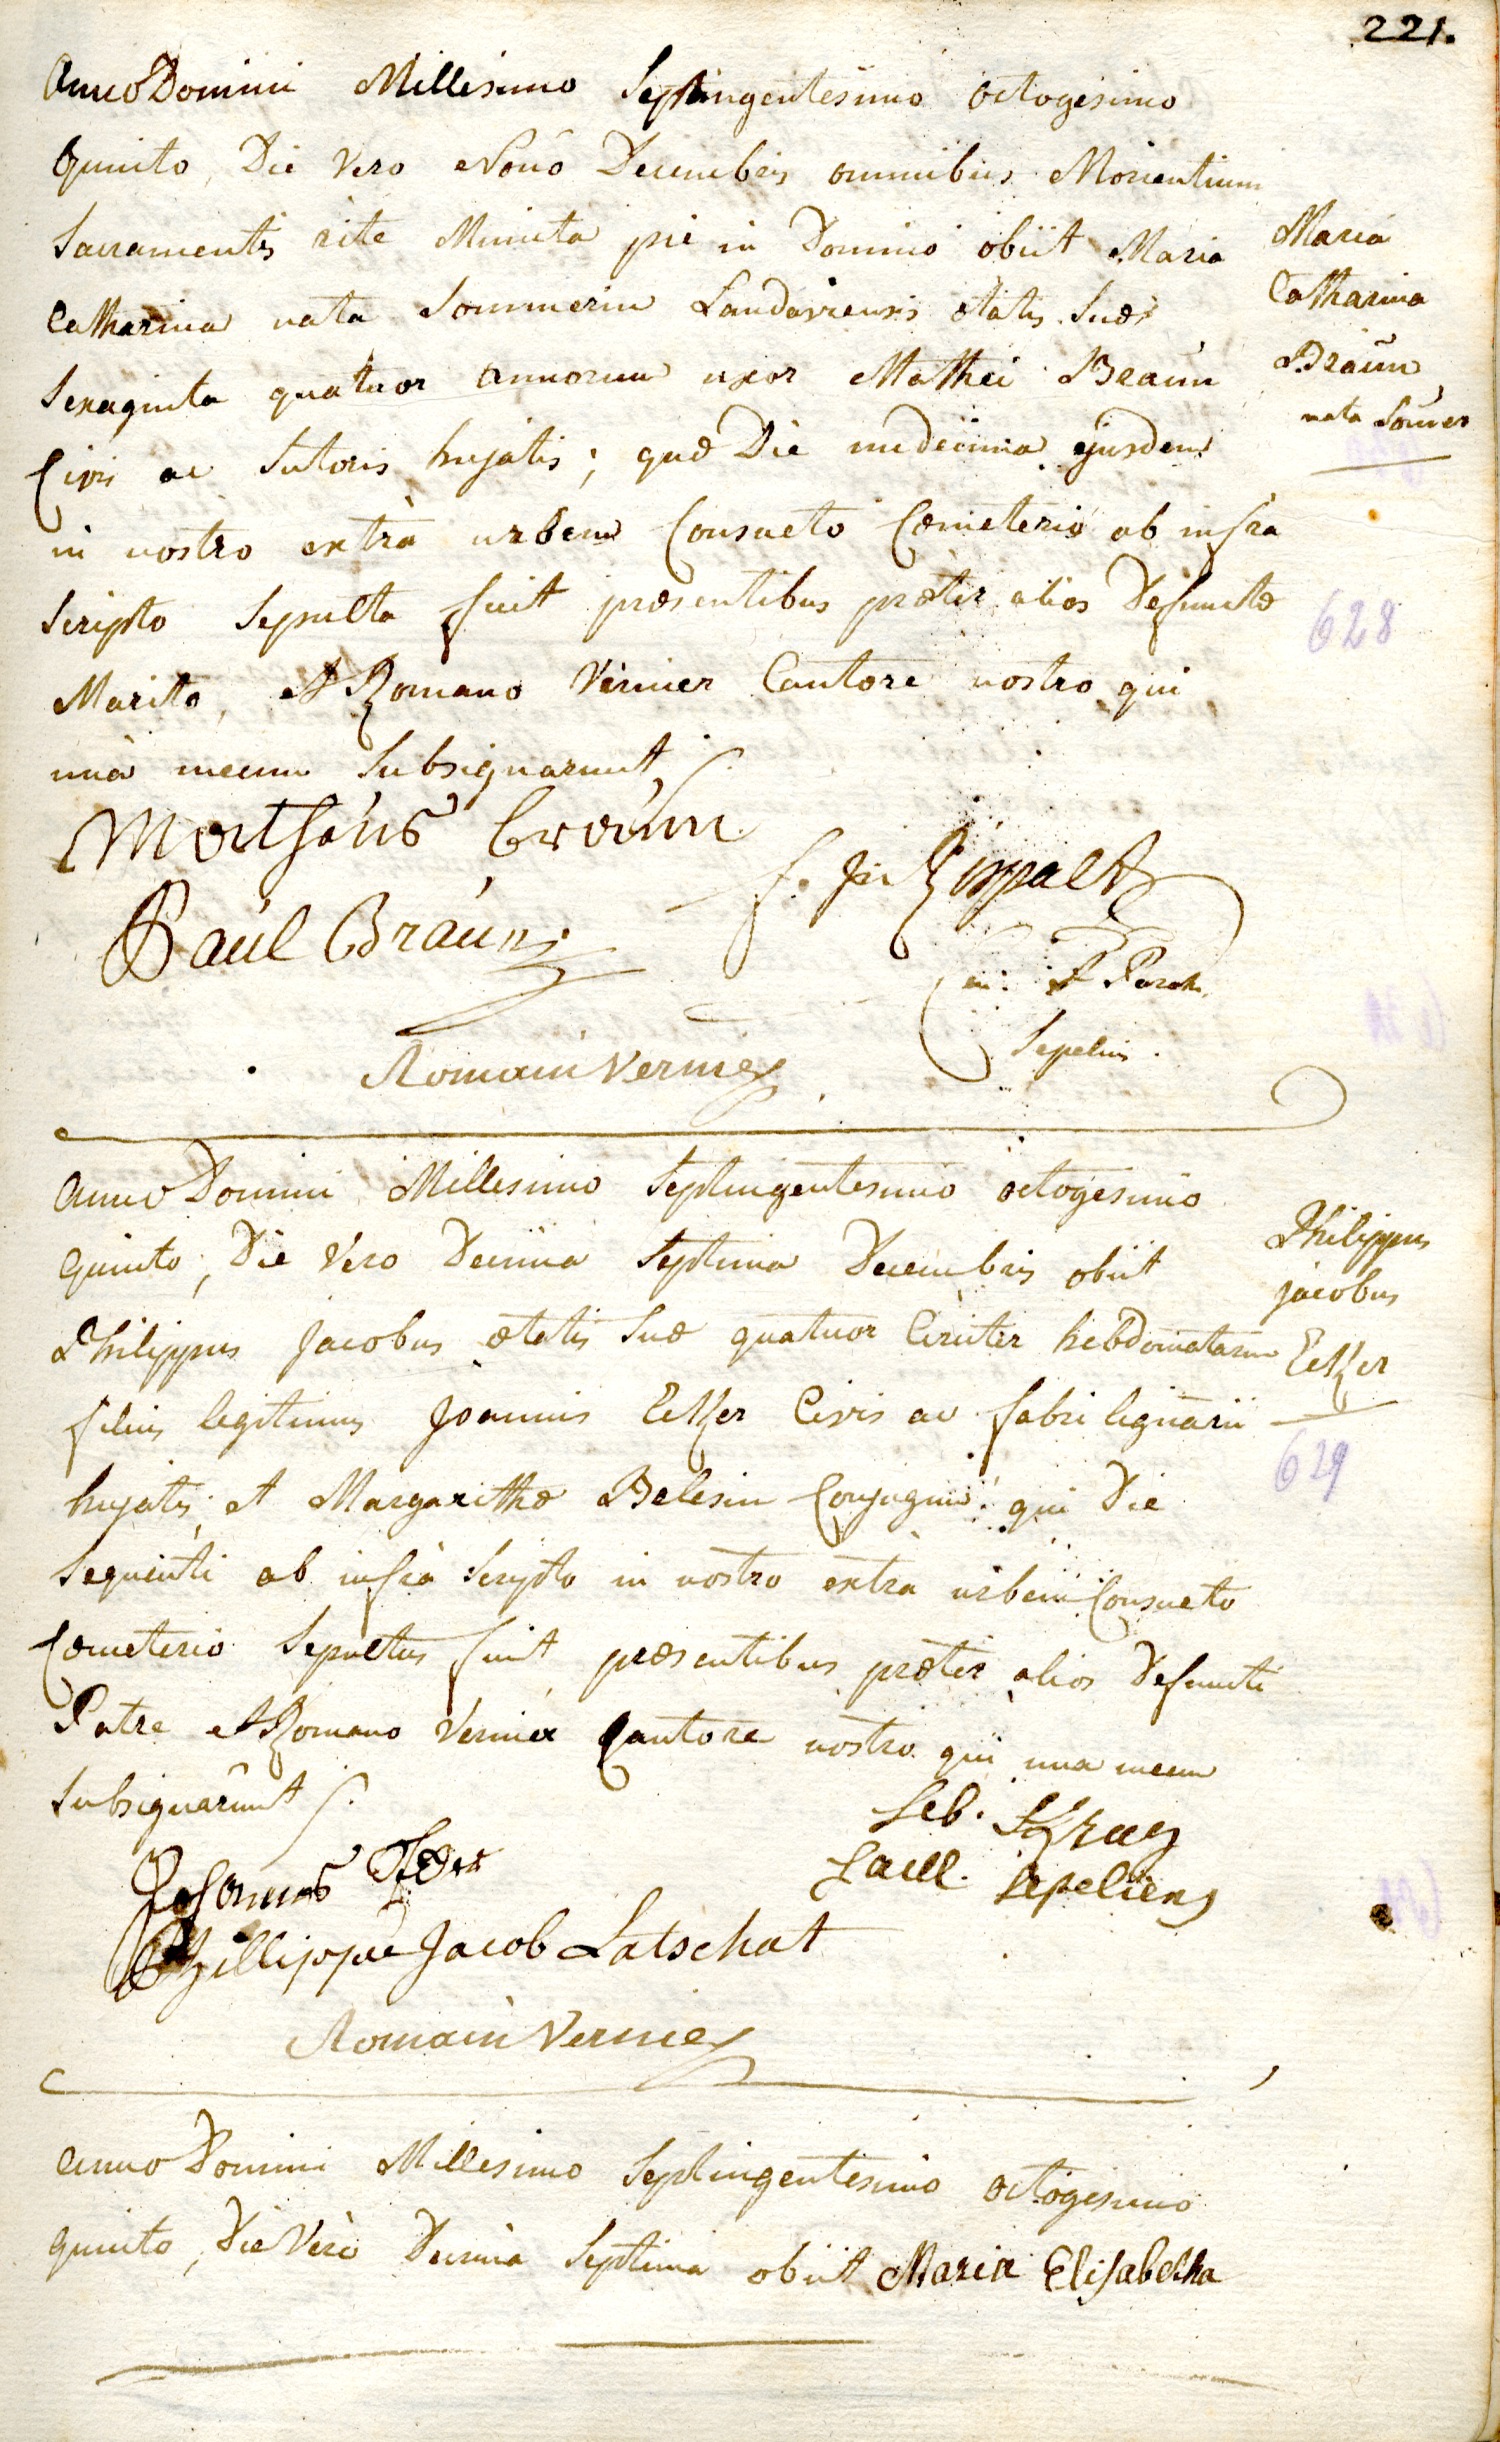 221.
Anno Domini Millesimo Septingentesimo octogesimo
quinto, Die Vero Nonô Decembris omnibus Morientium
Sacramentis rite Munita pie in Domino obiit Maria
Catharina nata Sommerin Landaviensis ætatis Suæ
Sexaginta quatuor annorum uxor Mathei Braun
Civis ac Sutoris hujatis; quæ Die undecima ejusdem
in nostro extrà urbem Consueto Cœmeterio ab infra
Scripto Sepulta fuit præsentibus præter alios Defunctæ
Marito, et Romano Vernier Cantore nostro qui
unà mecum Subsignarunt
Maria
Catharina
Braun
nata Somer
628
Mathäus Braun
Paul Braun
Romain Vernier
Sepeliens
Anno Domini Millesimo Septingentesimo octogesimo
quinto, Die Vero Decima Septima Decembris obiit
Philippus Jacobus ætatis Suæ quatuor Circiter hebdomatarum
filius legitimus Joannis Etzer Civis ac fabri lignarii
hujatis et Margarithæ Belesin Conjugum: qui Die
Sequenti ab infrà Scripto in nostro extra urbem Consueto
Cœmeterio Sepultus fuit præsentibus præter alios Defuncti
Patre et Romano Vernier Cantore nostro qui una mecum
Subsignarunt
Philippus
jacobus
Etzer
629
Seb.
Sacell. Sepeliens
Johannes
Phillippe Jacob Latschat
Romain Vernier
Anno Domini Millesimo Septingentesimo octogesimo
quinto, Die Vero Decima Septima obiit Maria Elisabetha